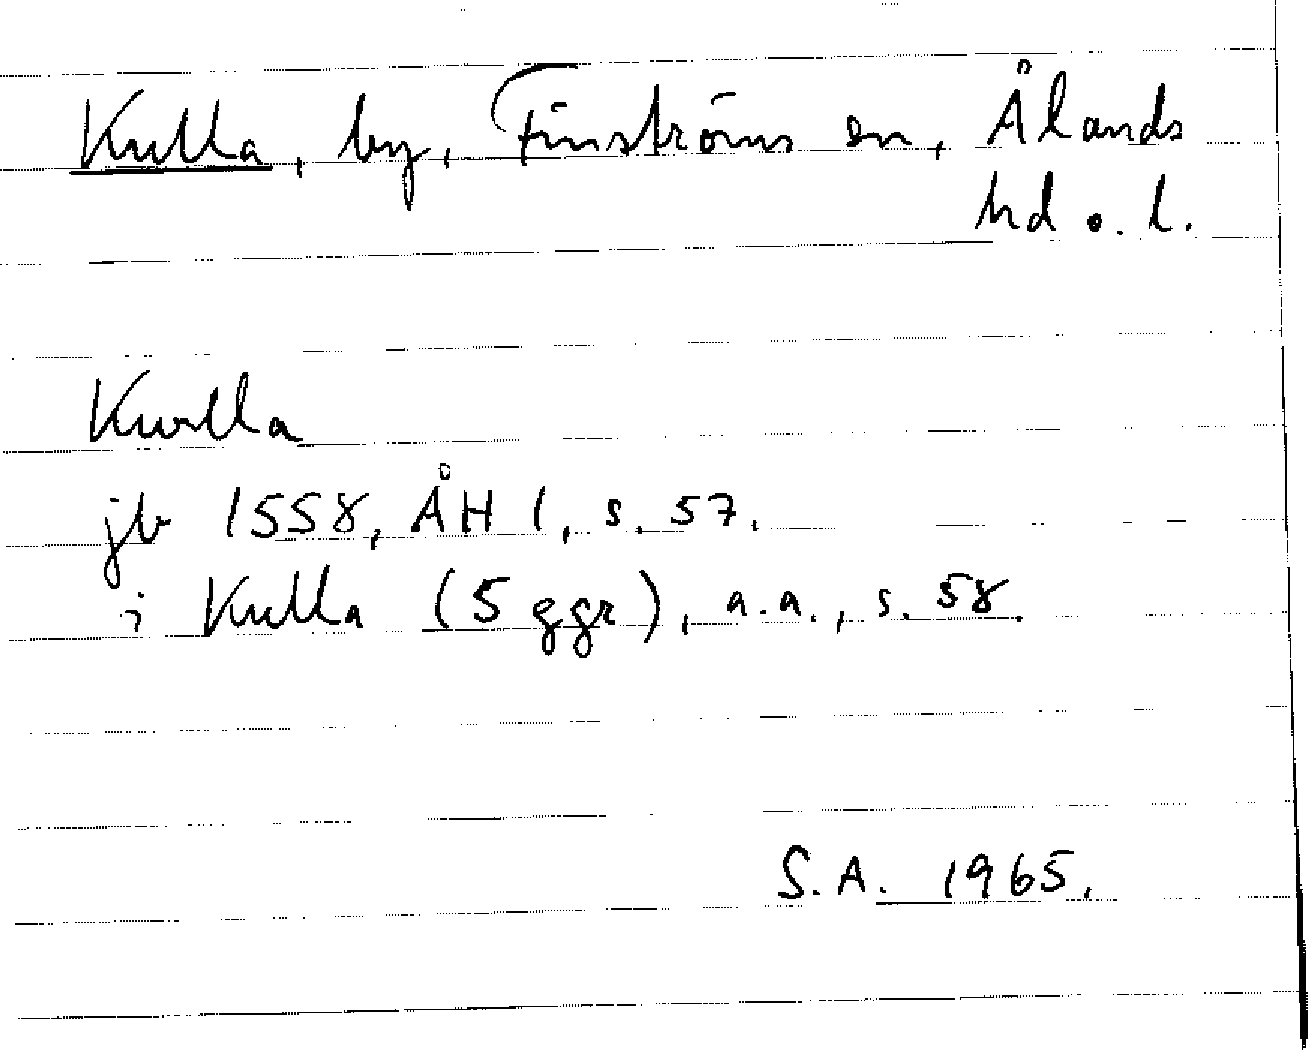 Kulla, by, Finströms sn, Ålands
hd o. l.
Kwlla
jb 1558, ÅH 1, s. 57.
i Kulla (5 ggr), a.a., s. 58.
S.A. 1965.